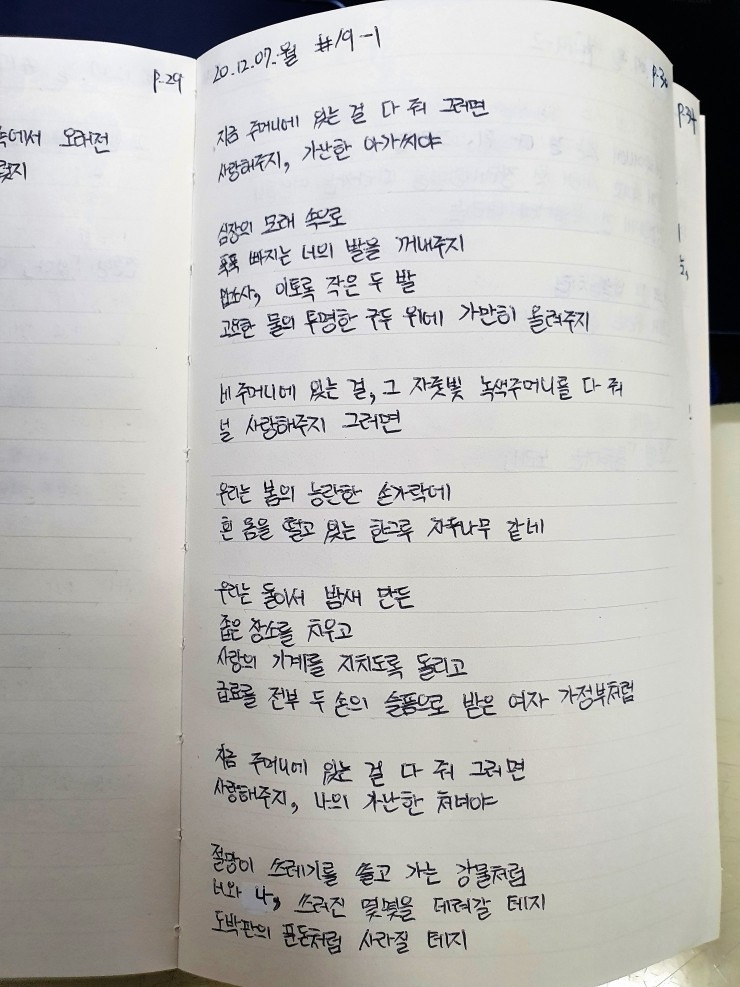 P.29
속에서 오려전
렇지
20.12.07.월 #19-1
P.30
P.34
지금 주머니에 있는 걸 다 줘 그러면
사랑해주지, 가난한 아가씨야
심장의 모래 속으로
푹푹 빠지는 너의 발을 꺼내주지
맙소사, 이토록 작은 두 발
고요한 물의 투명한 구두 위에 가만히 올려주지
네 주머니에 있는 걸, 그 자줏빛 녹색주머니를 다 줘
널 사랑해주지 그러면
우리는 봄의 능란한 손가락에
흰 몸을 떨고 있는 한그루 자두나무 같네
우리는 둘이서 밤새 만든
좁은 장소를 치우고
사랑의 기계를 지치도록 돌리고
급료를 전부 두 손의 슬픔으로 받은 여자 가정부처럼
지금 주머니에 있는 걸 다 줘 그러면
사랑해주지, 나의 가난한 처녀야
절망이 쓰레기를 쓸고 가는 강물처럼
너와 나, 쓰러진 몇몇을 데려갈 테지
도박판의 푼돈처럼 사라질 테지